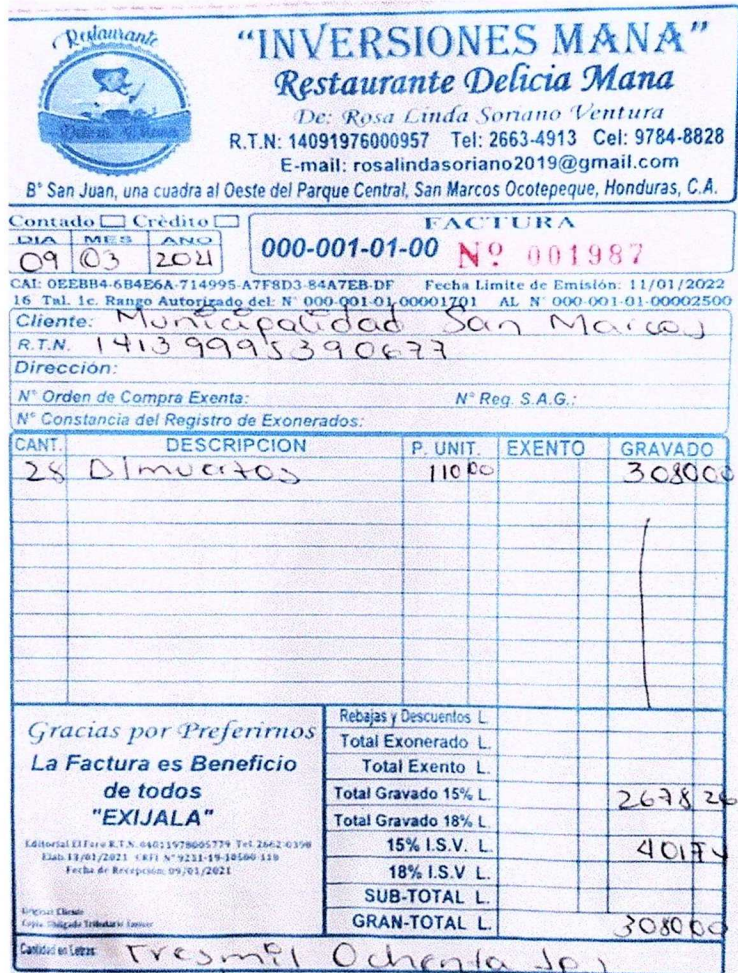 Restaurante
Delicia Mana
"INVERSIONES MANA"
Restaurante Delicia Mana
De: Rosa Linda Soriano Ventura
R.T.N: 14091976000957 Tel: 2663-4913 Cel: 9784-8828
E-mail: rosalindasoriano2019@gmail.com
B° San Juan, una cuadra al Oeste del Parque Central, San Marcos Ocotepeque, Honduras, C.A.
Contado Crèdito
FACTURA
DIA MES AÑO
09 03 2021
000-001-01-00 Nº 001987
CAI: 0EEBB4-6B4E6A-714995-A7F8D3-84A7EB-DF Fecha Limite de Emisiòn: 11/01/2022
16 Tal. 1c. Rango Autorizado del: N° 000-001-01-00001701 AL N° 000-001-01-00002500
Cliente: Municipalidad San Marcos
R.T.N. 14139995390677
Dirección:
N° Orden de Compra Exenta: N° Reg. S.A.G.:
N° Constancia del Registro de Exonerados:
CANT. DESCRIPCION P. UNIT. EXENTO GRAVADO
28 Almuerzos 110 00 3080 00
Gracias por Preferirnos
La Factura es Beneficio
de todos
"EXIJALA"
Editorial El Faro R.T.N. 04011978005779 Tel. 2662-0390
Elab. 13/01/2021 CRTI N° 9231-19-10500-110
Fecha de Recepciòn: 09/01/2021
Original: Cliente
Copia: Obligado Tributario Emisor
Rebajas y Descuentos L.
Total Exonerado L.
Total Exento L.
Total Gravado 15% L. 2678 26
Total Gravado 18% L.
15% I.S.V. L. 401 74
18% I.S.V L.
SUB-TOTAL L.
GRAN-TOTAL L. 3080 00
Cantidad en Letras: Tres mil Ochenta